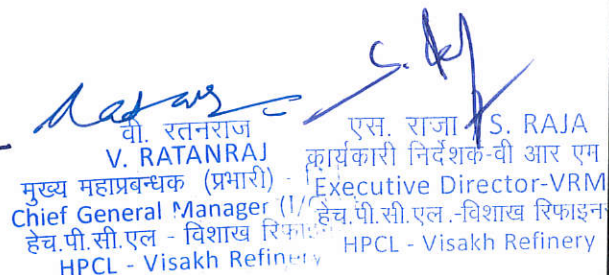 वी. रतनराज
V. RATANRAJ
मुख्य महाप्रबन्धक (प्रभारी) -
Chief General Manager (I/
हेच.पी.सी.एल - विशाख
HPCL - Visakh Refinery
एस. राजा S. RAJA
कार्यकारी निर्देशक-वी आर एम
Executive Director-VRM
हेच.पी.सी.एल.-विशाख रिफाइन
HPCL - Visakh Refinery